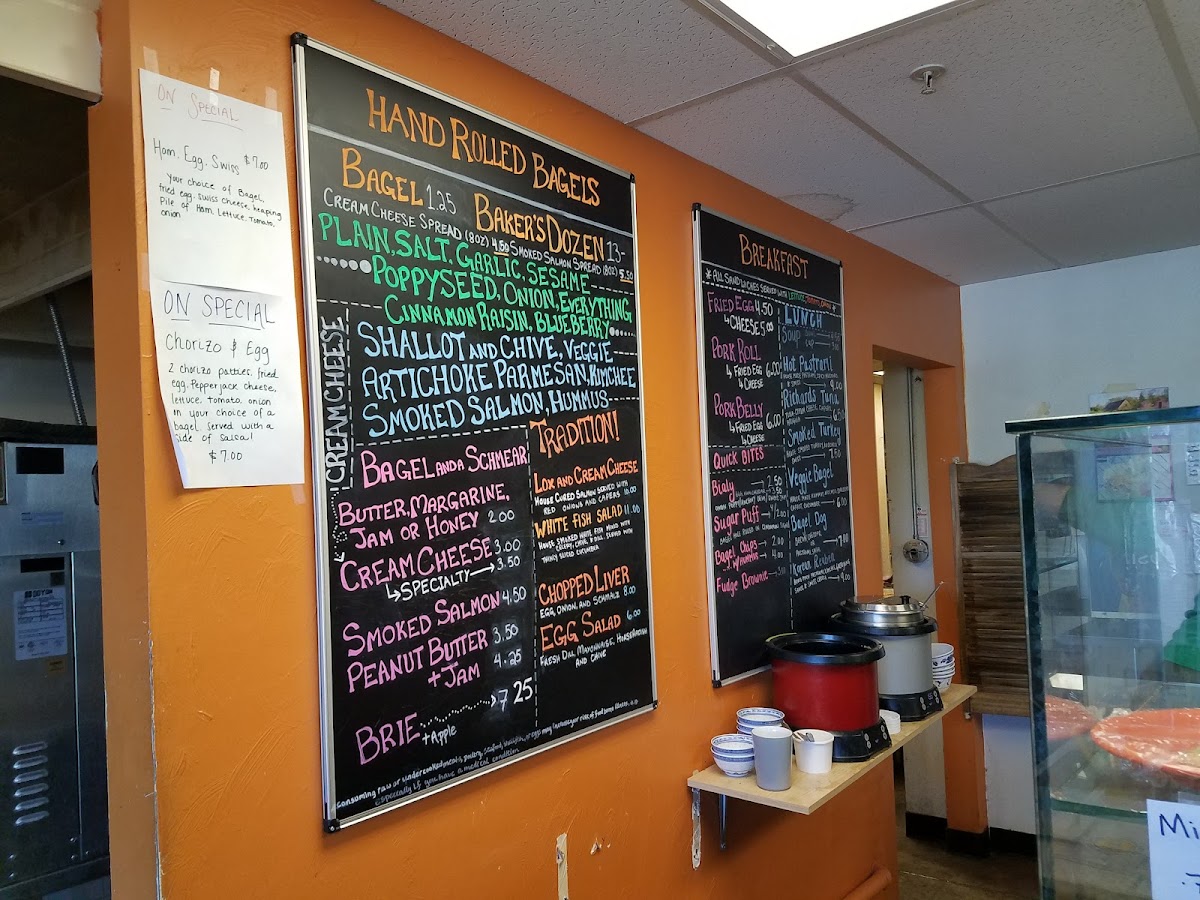 ON SPECIAL
Ham, Egg, Swiss $7.00
Your choice of Bagel,
fried egg, swiss cheese, heaping
Pile of Ham, Lettuce, Tomato,
onion
ON SPECIAL
Chorizo & Egg
2 chorizo patties, fried
egg, Pepperjack cheese,
lettuce, tomato, onion
on your choice of a
bagel, served with a
side of salsa!
$7.00
HAND ROLLED BAGELS
BAGEL 1.25 BAKER'S DOZEN 13-
CREAM CHEESE SPREAD (8OZ) 4.50 SMOKED SALMON SPREAD (8OZ) 5.50
PLAIN, SALT, GARLIC, SESAME
POPPYSEED, ONION, EVERYTHING
CINNAMON RAISIN, BLUEBERRY
CREAM CHEESE
SHALLOT AND CHIVE, VEGGIE
ARTICHOKE PARMESAN, KIMCHEE
SMOKED SALMON, HUMMUS
BAGEL AND A SCHMEAR
BUTTER, MARGARINE,
JAM OR HONEY 2.00
CREAM CHEESE 3.00
↳SPECIALTY→ 3.50
SMOKED SALMON 4.50
PEANUT BUTTER 3.50
+ JAM 4.25
BRIE 7 25
+ Apple
TRADITION!
LOX AND CREAM CHEESE
HOUSE CURED SALMON SERVED WITH
RED ONIONS AND CAPERS 10.00
WHITE FISH SALAD 11.00
HOUSE SMOKED WHITE FISH MIXED WITH
CELERY, CHIVE & DILL. SERVED WITH
THINLY SLICED CUCUMBER
CHOPPED LIVER
EGG, ONION, AND SCHMALZ 8.00
EGG SALAD 6.00
FRESH DILL, MAYONNAISE, HORSERADISH
AND CHIVE
Consuming raw or undercooked meats, poultry, seafood, shellfish, or eggs may increase your risk of food borne illness,
especially if you have a medical condition
BREAKFAST
* ALL SANDWICHES SERVED WITH LETTUCE, TOMATO, ONION *
FRIED EGG 4.50
↳ CHEESE 5.00
PORK ROLL
↳ FRIED EGG 6.00
↳ CHEESE
PORK BELLY
↳ FRIED EGG 6.00
↳ CHEESE
QUICK BITES
Bialy 2.50
Sugar Puff
Bagel Chips 2.00
Fudge Brownie
LUNCH
Soup
Hot Pastrami
Richards Tuna
6.50
Smoked Turkey
7.50
Veggie Bagel
6.00
Bagel Dog
7.00
Korean Reuben
9.00
Mi